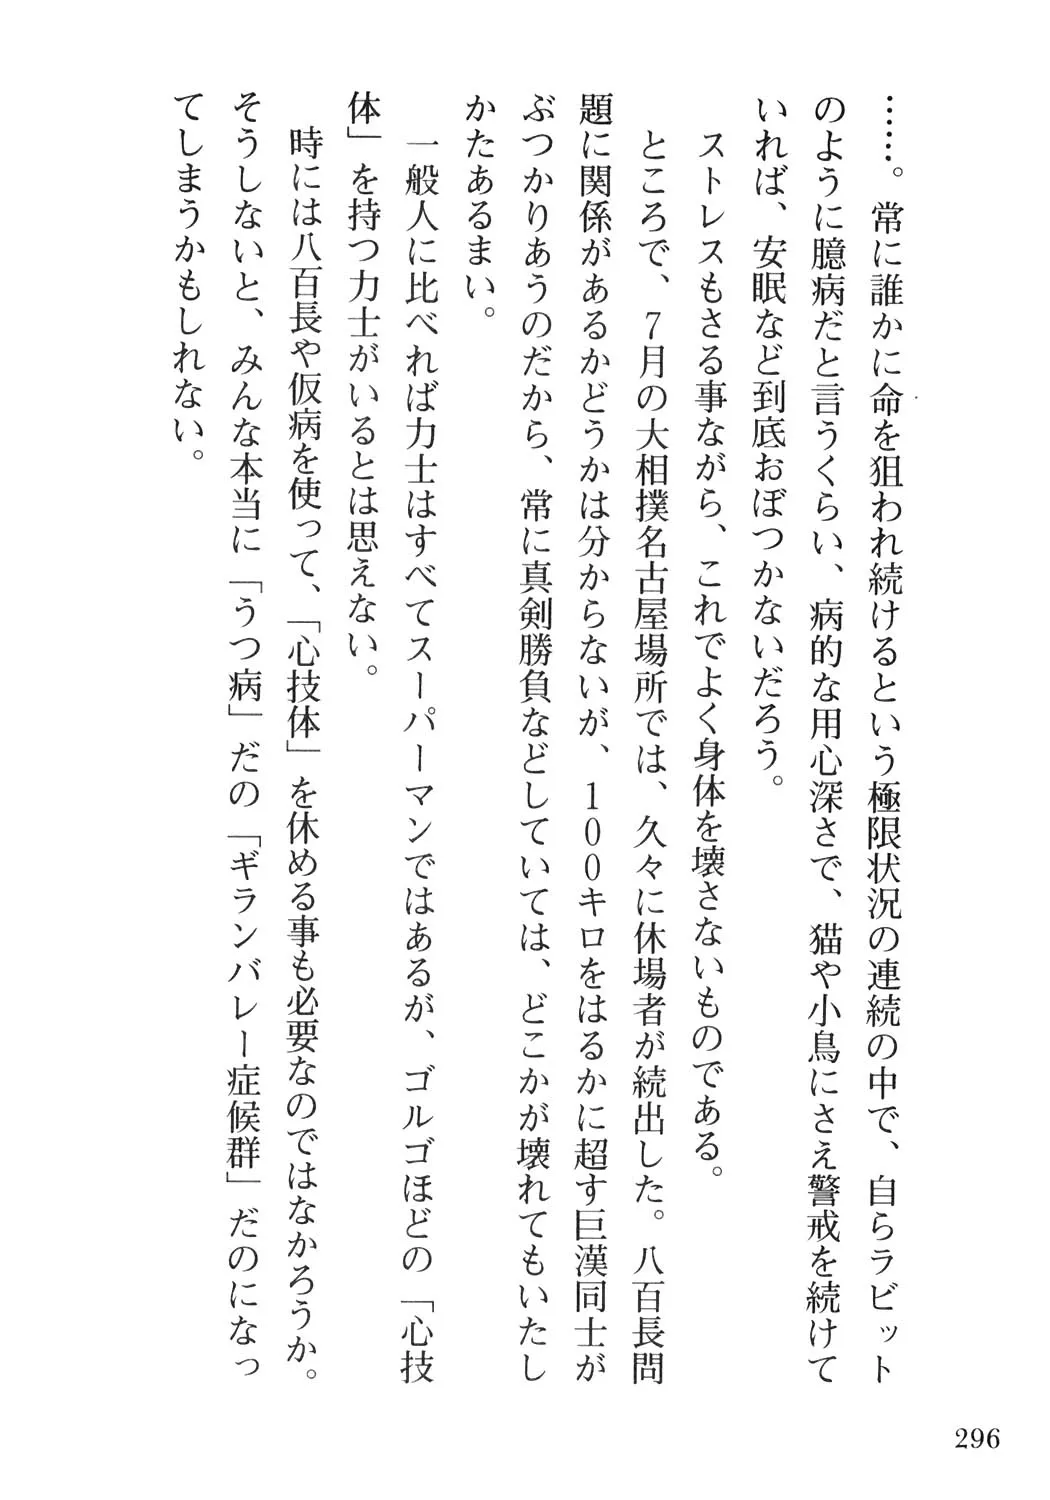 ……。常に誰かに命を狙われ続けるという極限状況の連続の中で、自らラビット
のように臆病だと言うくらい、病的な用心深さで、猫や小鳥にさえ警戒を続けて
いれば、安眠など到底おぼつかないだろう。
ストレスもさる事ながら、これでよく身体を壊さないものである。
ところで、7月の大相撲名古屋場所では、久々に休場者が続出した。八百長問
題に関係があるかどうかは分からないが、100キロをはるかに超す巨漢同士が
ぶつかりあうのだから、常に真剣勝負などしていては、どこかが壊れてもいたし
かたあるまい。
一般人に比べれば力士はすべてスーパーマンではあるが、ゴルゴほどの「心技
体」を持つ力士がいるとは思えない。
時には八百長や仮病を使って、「心技体」を休める事も必要なのではなかろうか。
そうしないと、みんな本当に「うつ病」だの「ギランバレー症候群」だのになっ
てしまうかもしれない。
296